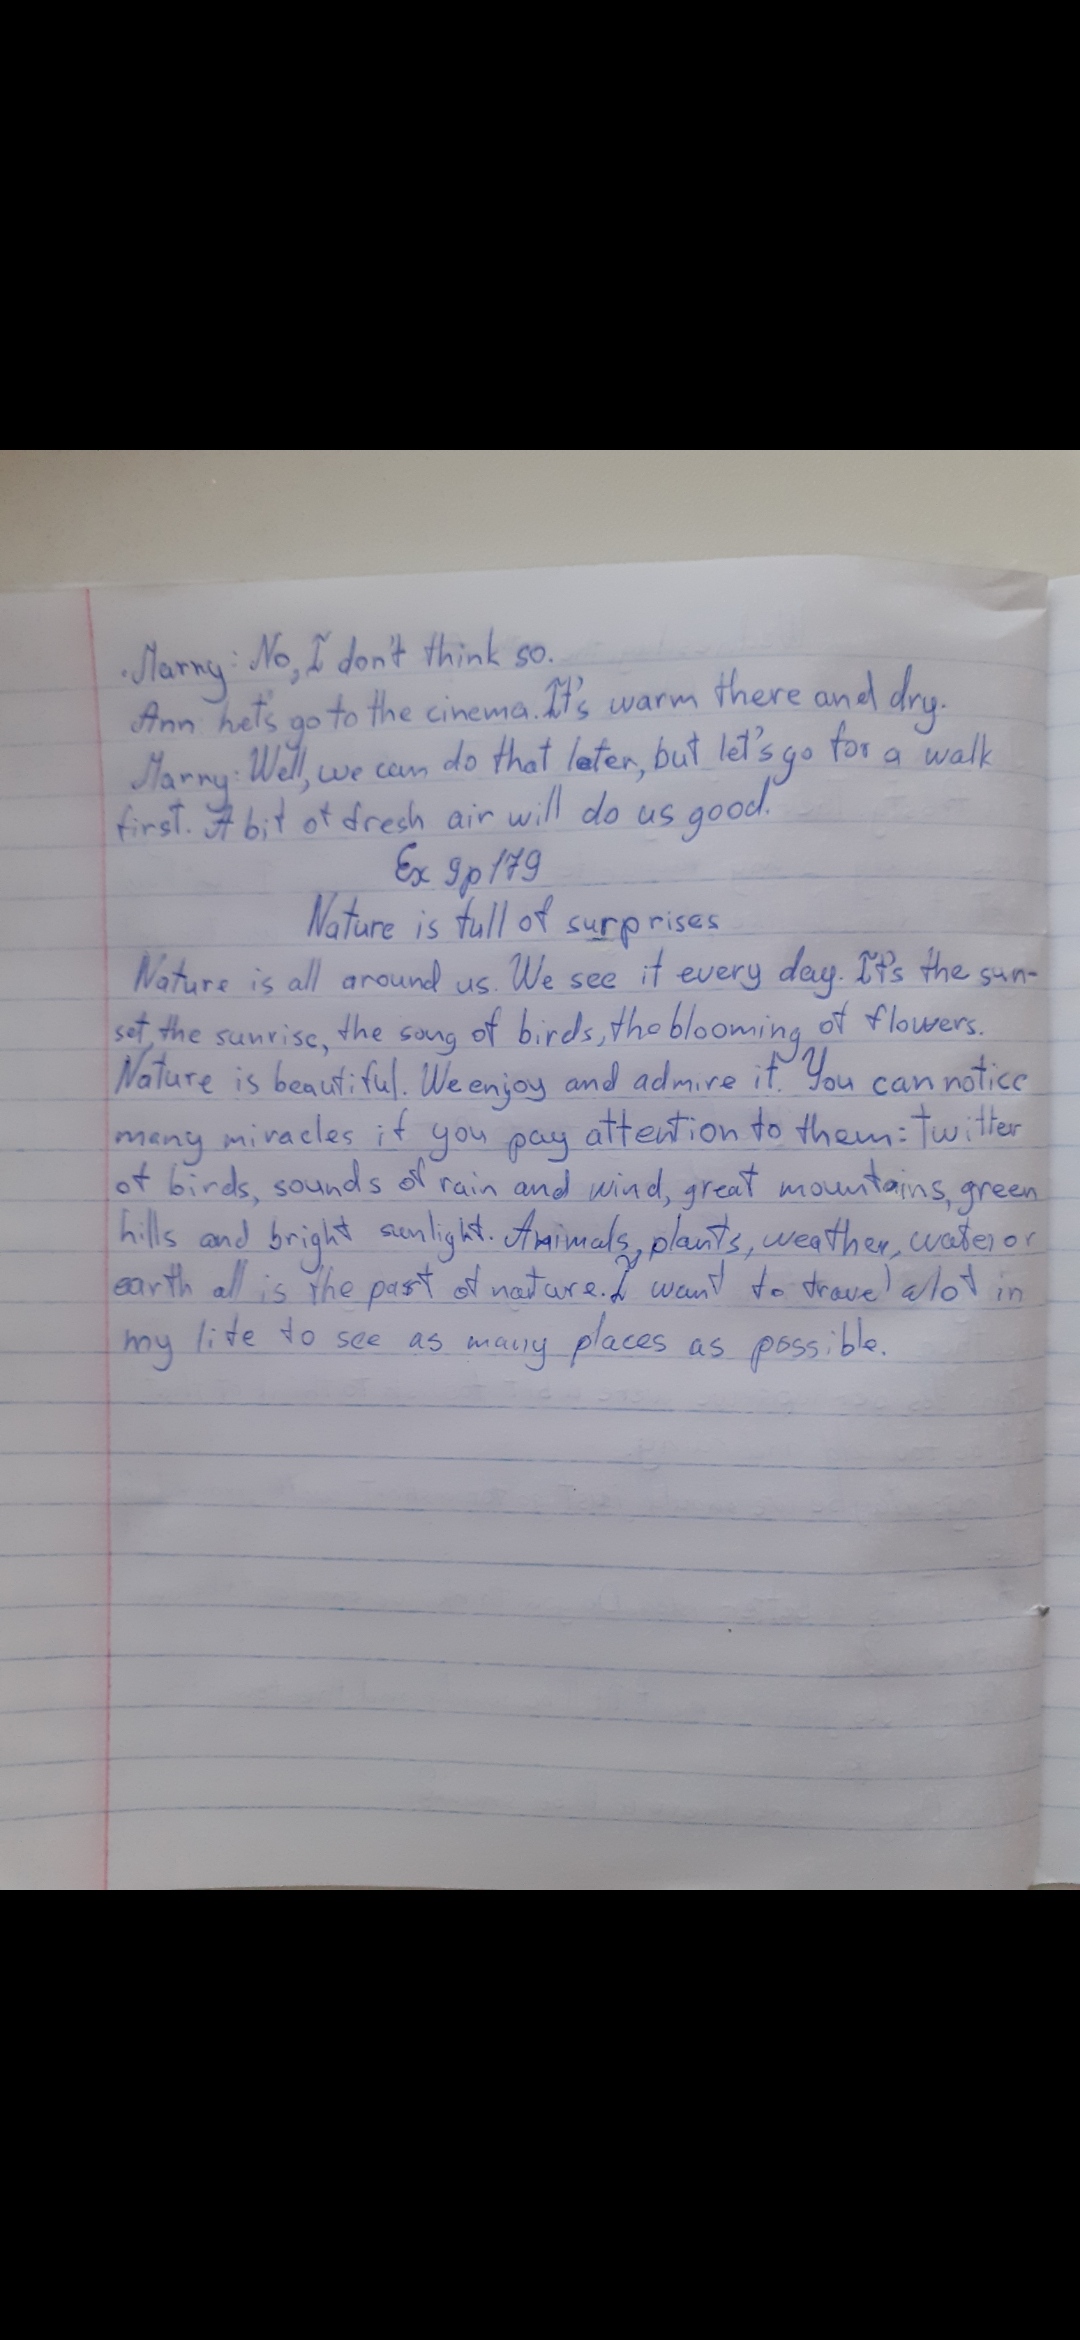 Marry: No, I don't think so.
Ann Let's go to the cinema. It's warm there and dry.
Marry: Well, we can do that later, but let's go for a walk
first. A bit of fresh air will do us good.
Ex 9p179
Nature is full of surprises
Nature is all around us. We see it every day. It's the sun-
set, the sunrise, the song of birds, the blooming of flowers.
Nature is beautiful. We enjoy and admire it. You can notice
many miracles if you pay attention to them: twitter
of birds, sounds of rain and wind, great mountains, green
hills and bright sunlight. Animals, plants, weather, water or
earth all is the part of nature. I want to travel a lot in
my life to see as many places as possible.